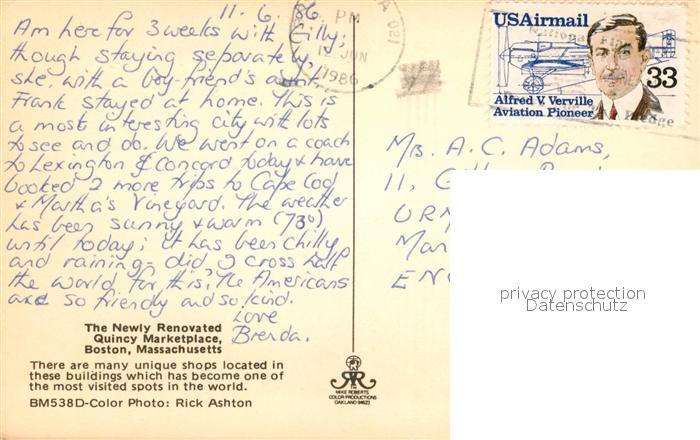 11.6.86.
Am here for 3 weeks with Gilly;
though staying separately,
she, with a boy-friend's aunt.
Frank stayed at home. This is
a most interesting city with lots
to see and do. We went on a coach
to Lexington & Concord today & have
booked 2 more trips to Cape Cod
& Martha's Vineyard. The weather
has been sunny & warm (73°)
until today; it has been chilly
and raining - did I cross half
the world for this! The Americans
are so friendly and so kind.
Love
Brenda.
The Newly Renovated
Quincy Marketplace,
Boston, Massachusetts
There are many unique shops located in
these buildings which has become one of
the most visited spots in the world.
BM538D-Color Photo: Rick Ashton
MIKE ROBERTS
COLOR PRODUCTIONS
OAKLAND 94623
PM
JUN
1986
MA 021
USAirmail
33
Alfred V. Verville
Aviation Pioneer
A.C. Adams,
11,
privacy protection
Datenschutz